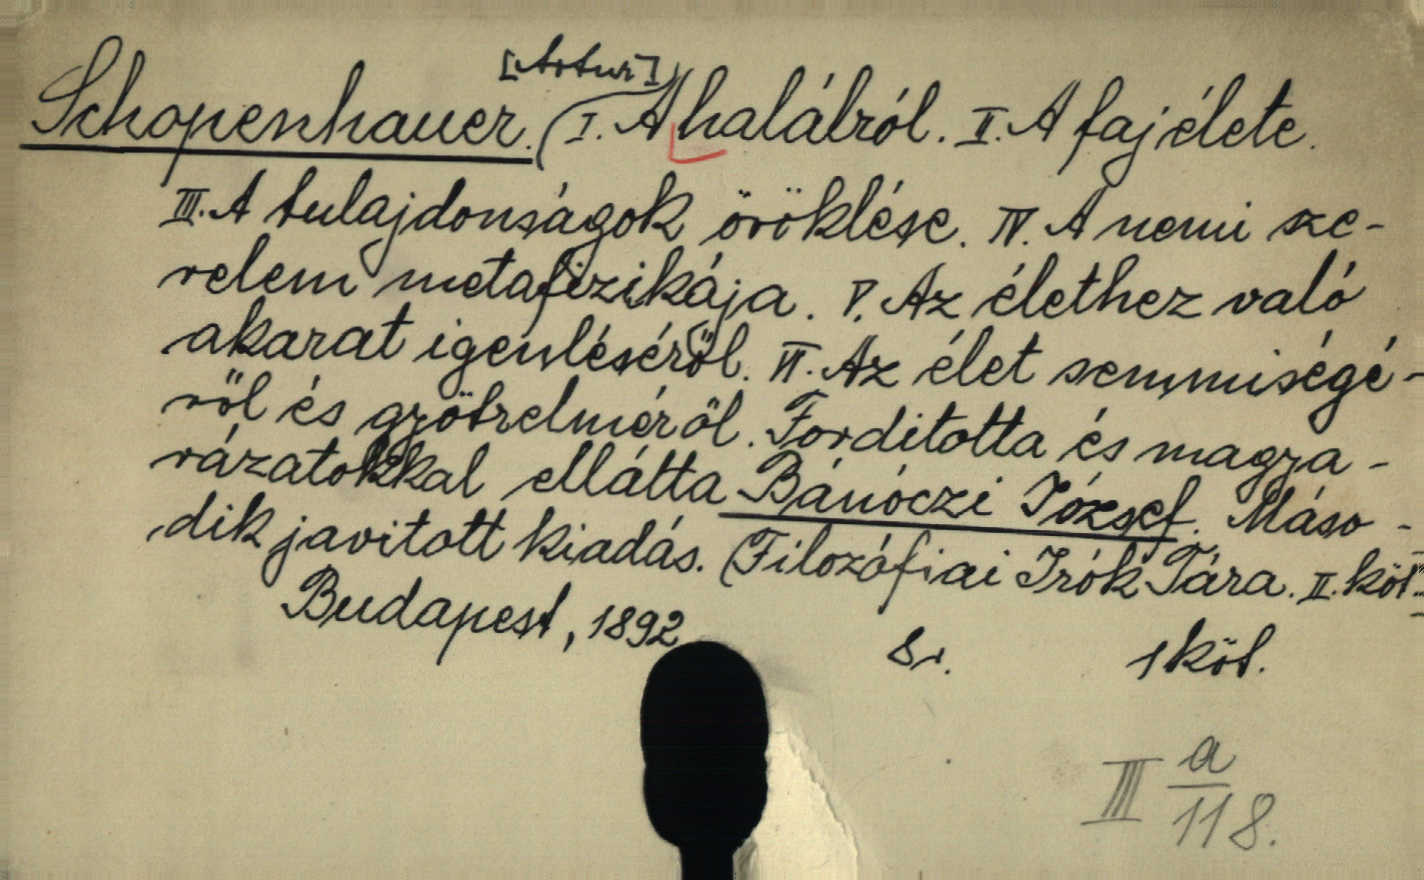 [Artur]
Schopenhauer. (I. A halálról. II. A faj élete.
III. A tulajdonságok öröklése. IV. A nemi sze-
relem metafizikája. V. Az élethez való
akarat igenléséről. VI. Az élet semmiségé-
ről és gyötrelméről. Forditotta és magya-
rázatokkal ellátta Bánóczi József. Máso-
dik javitott kiadás. (Filozófiai Irók Tára. II. köt.
Budapest, 1892 8r. 1 köt.
III a/118.